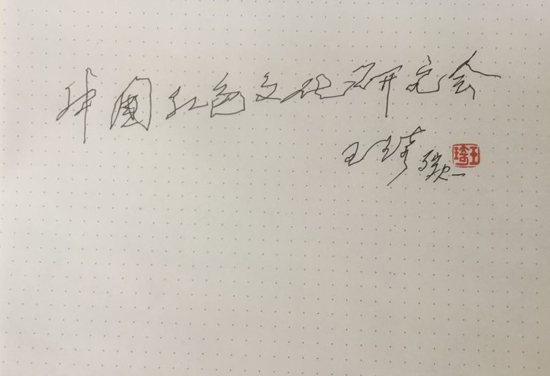 中国红色文化研究会
王 琦 题
王琦